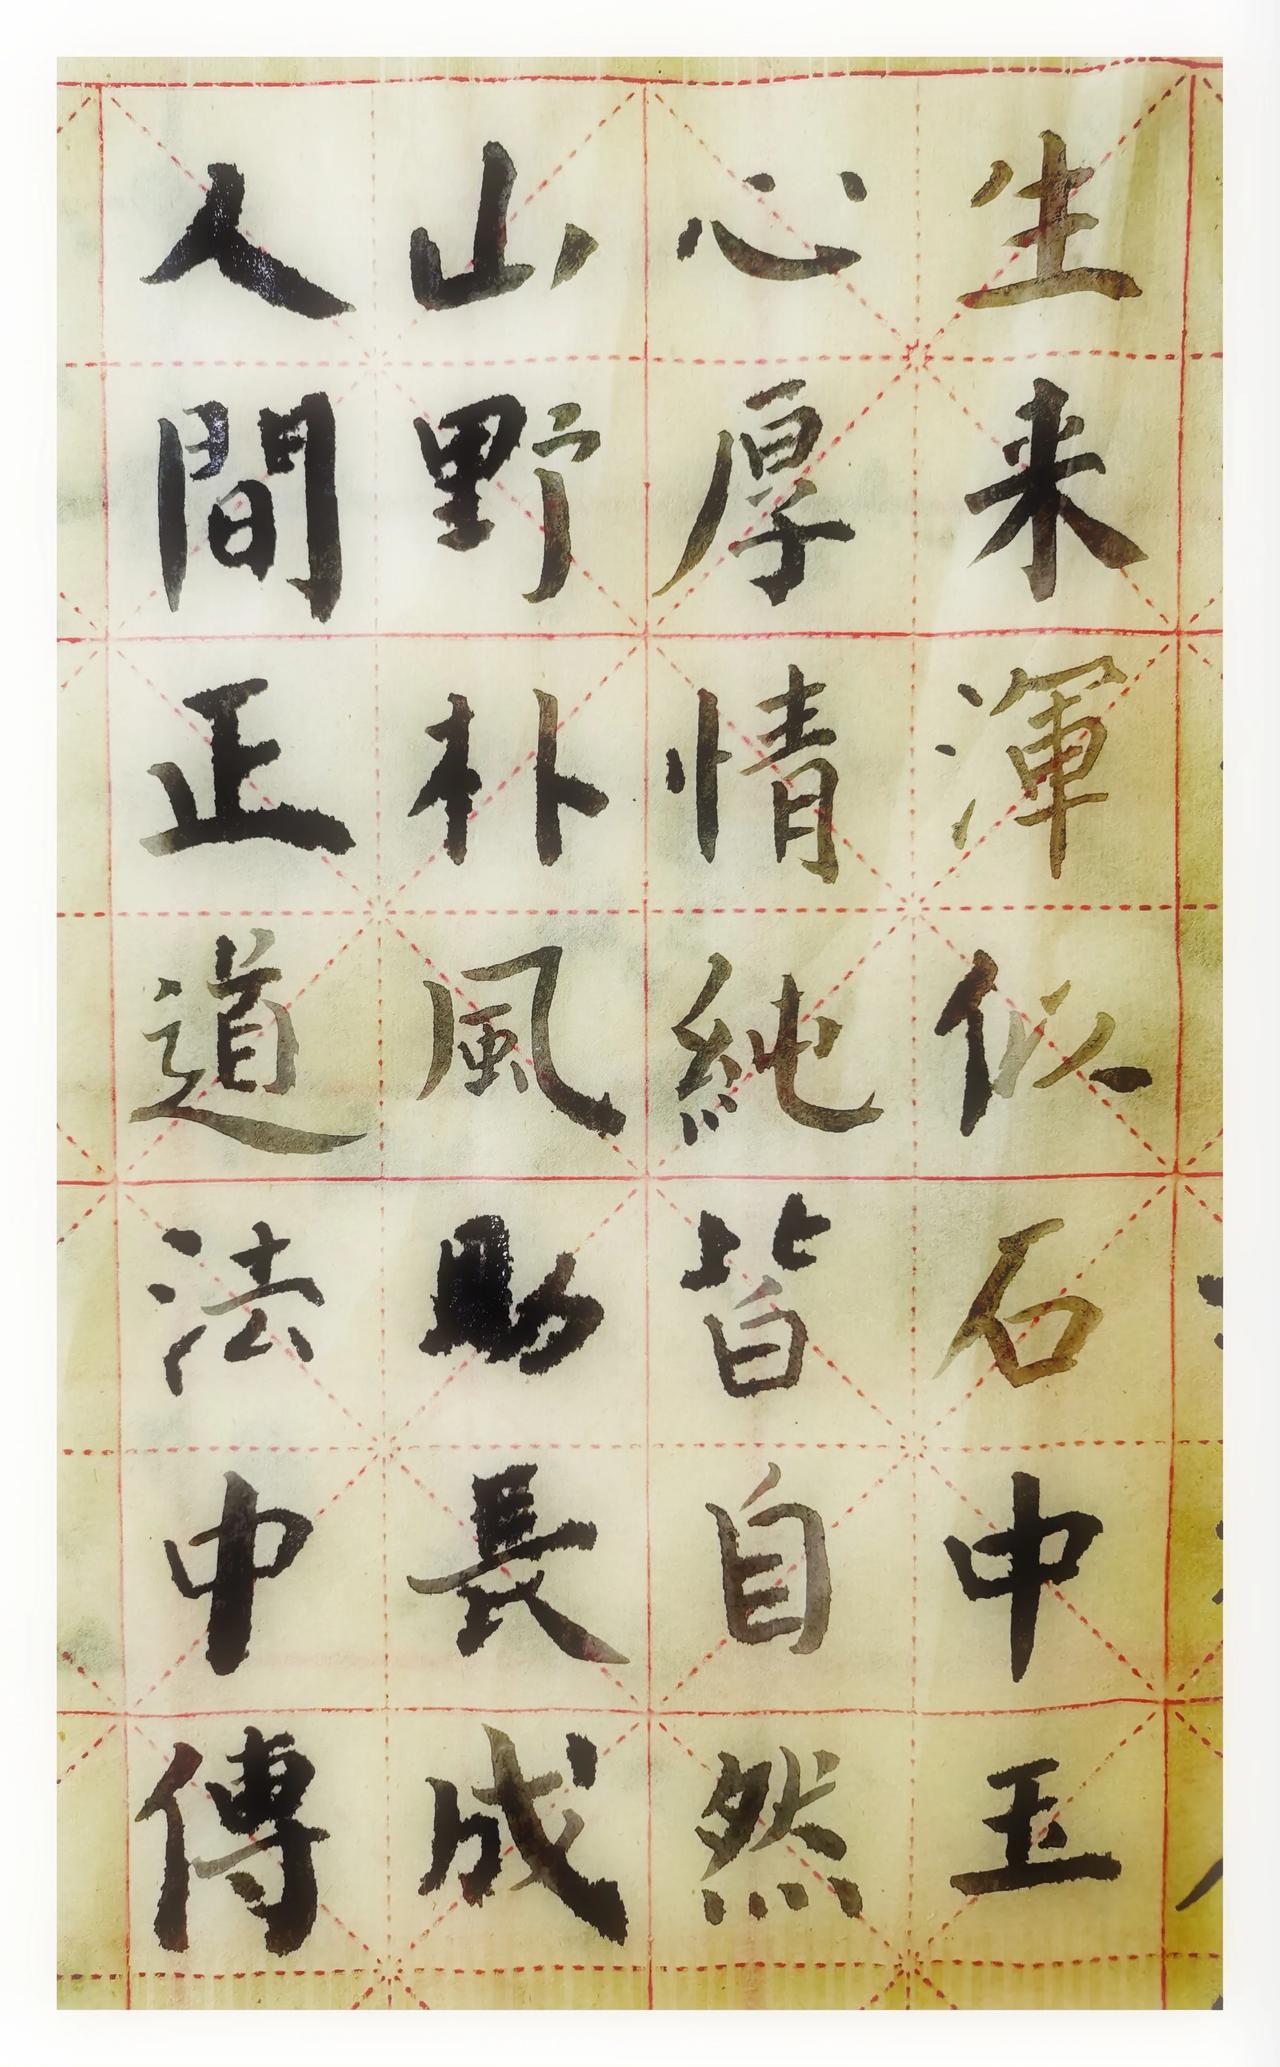 生来渾似石中玉
心厚情純皆自然
山野朴風助長成
人間正道法中傳